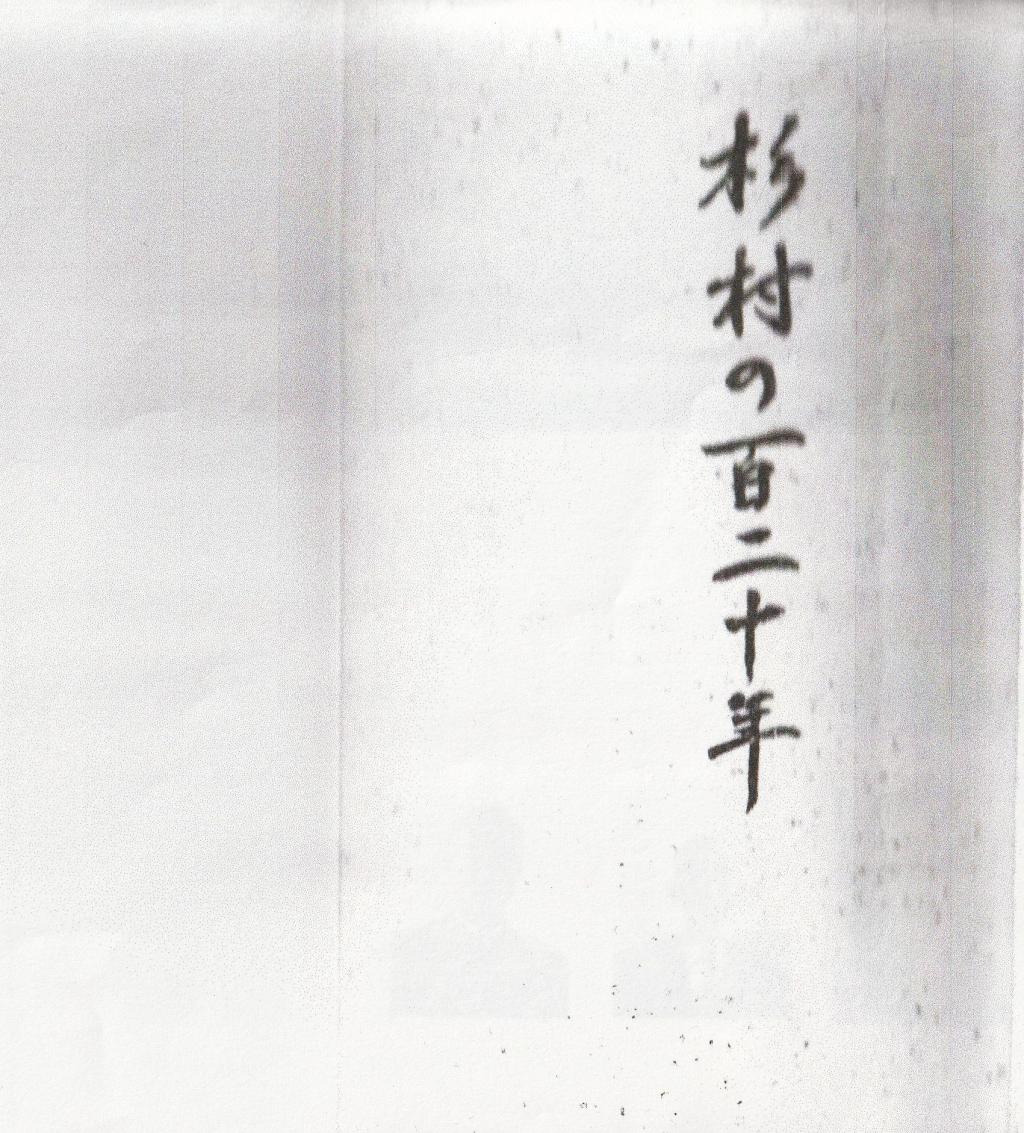 杉村の百二十年